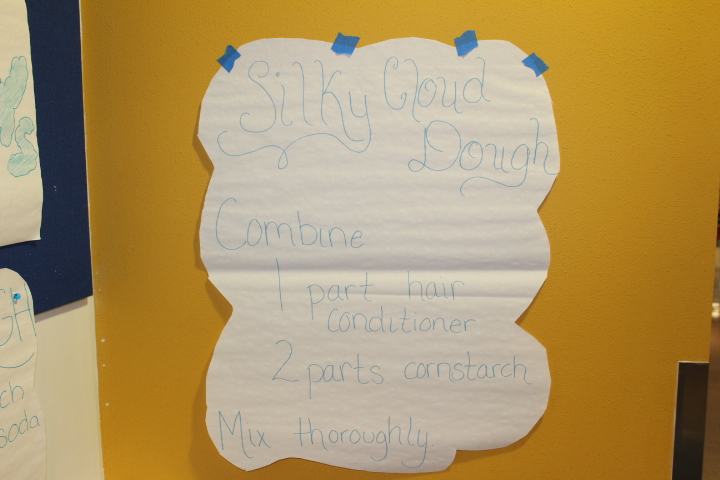 Silky Cloud
Dough
Combine
1 part hair
conditioner
2 parts cornstarch
Mix thoroughly
soda